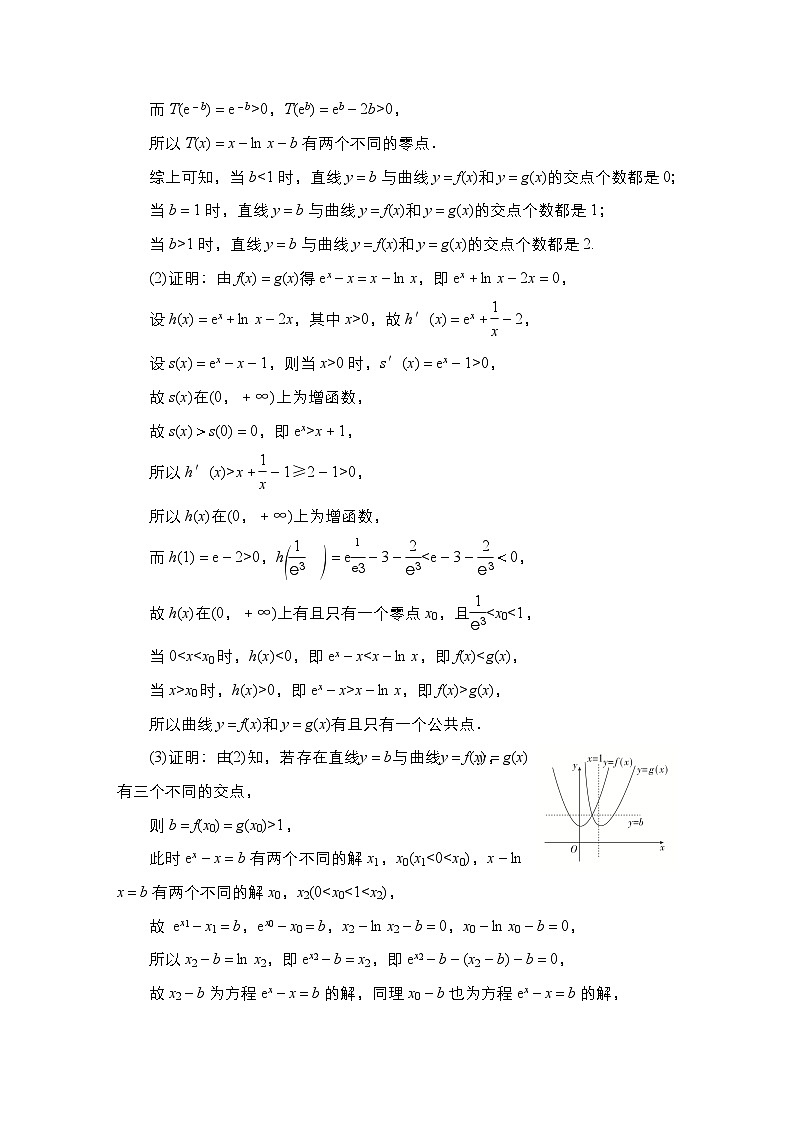 而 T(e⁻ᵇ) = e⁻ᵇ>0，T(eᵇ) = eᵇ − 2b>0，
所以 T(x) = x − ln x − b 有两个不同的零点．
综上可知，当 b<1 时，直线 y = b 与曲线 y = f(x)和 y = g(x)的交点个数都是 0；
当 b = 1 时，直线 y = b 与曲线 y = f(x)和 y = g(x)的交点个数都是 1；
当 b>1 时，直线 y = b 与曲线 y = f(x)和 y = g(x)的交点个数都是 2.
(2)证明：由 f(x) = g(x)得 eˣ − x = x − ln x，即 eˣ + ln x − 2x = 0，
设 h(x) = eˣ + ln x − 2x，其中 x>0，故 h′(x) = eˣ + 1/x − 2，
设 s(x) = eˣ − x − 1，则当 x>0 时，s′(x) = eˣ − 1>0，
故 s(x)在(0，+∞)上为增函数，
故 s(x) > s(0) = 0，即 eˣ>x + 1，
所以 h′(x)>x + 1/x − 1 ≥ 2 − 1>0，
所以 h(x)在(0，+∞)上为增函数，
而 h(1) = e − 2>0，h(1/e³) = e^(1/e3) − 3 − 2/e³ <e − 3 − 2/e³ < 0，
故 h(x)在(0，+∞)上有且只有一个零点 x₀，且 1/e³ <x₀<1，
当 0<x<x₀ 时，h(x)<0，即 eˣ − x<x − ln x，即 f(x)<g(x)，
当 x>x₀ 时，h(x)>0，即 eˣ − x>x − ln x，即 f(x)>g(x)，
所以曲线 y = f(x)和 y = g(x)有且只有一个公共点．
(3)证明：由(2)知，若存在直线 y = b 与曲线 y = f(x)，y = g(x)
有三个不同的交点，
则 b = f(x₀) = g(x₀)>1，
此时 eˣ − x = b 有两个不同的解 x₁，x₀(x₁<0<x₀)，x − ln
x = b 有两个不同的解 x₀，x₂(0<x₀<1<x₂)，
故 e^x1 − x₁ = b，e^x0 − x₀ = b，x₂ − ln x₂ − b = 0，x₀ − ln x₀ − b = 0，
所以 x₂ − b = ln x₂，即 e^x2 − b = x₂，即 e^x2 − b − (x₂ − b) − b = 0，
故 x₂ − b 为方程 eˣ − x = b 的解，同理 x₀ − b 也为方程 eˣ − x = b 的解，
y x=1 y=f(x) y=g(x)
y=b
O x